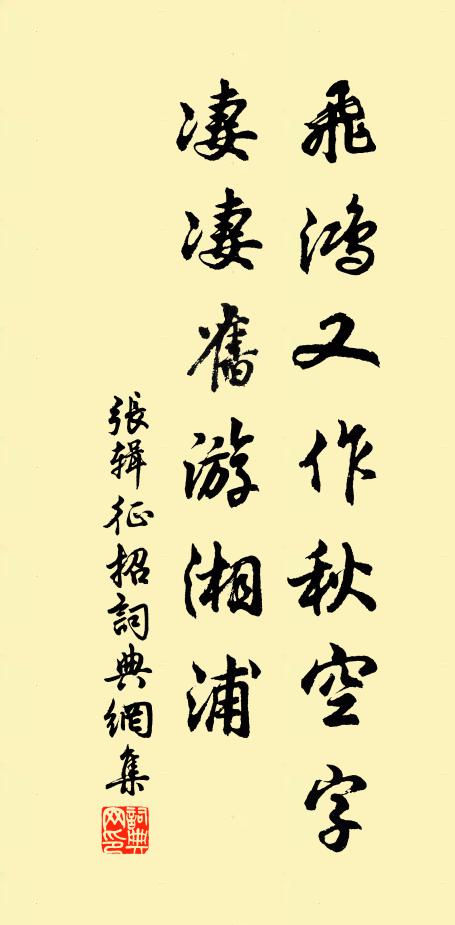 飛鴻又作秋空字
凄凄舊游湘浦
張辑征招詞典網集
詞典網印